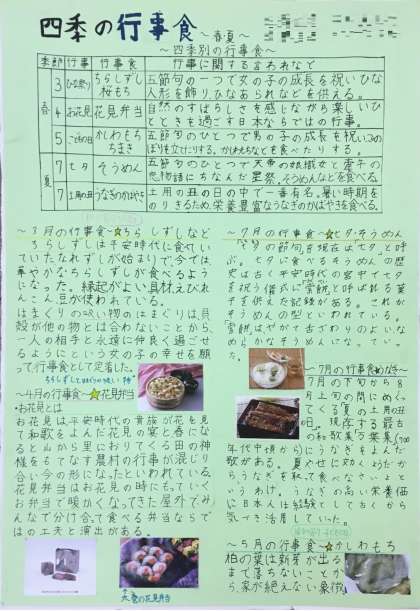 四季の行事食 ～春夏～
～四季別の行事食～
季節 行事 行事食 行事に関する言われなど
春
3 ひな祭り ちらしずし 桜もち
五節句の一つで女の子の成長を祝いひな
人形を飾り、ひなあられなどを供える。
4 お花見 花見弁当
自然のすばらしさを感じながら楽しいひ
とときを過ごす日本ならではの行事。
夏
5 こどもの日 かしわもち ちまき
五節句のひとつで男の子の成長を祝い、
7 七夕 そうめん
五節句のひとつで天帝の娘織女と
7 土用の丑 うなぎのかばやき
土用の丑の日の中で一番有名。暑い時期を
のりきるため、栄養豊富なうなぎのかばやきを食べる。
～3月の行事食～☆ちらしずしなど
ちらしずしは平安時代に食べ
ていたなれずしが始まりで、今では
華やかなちらしずしが食べるよう
になった。縁起がよい具材えび、れ
んこん、豆が使われている。
はまぐりの吸い物のはまぐりは、貝
殻が他の物とは合わないことから、
一人の相手と永遠に仲良く過ごせ
るようにという女の子の幸せを願
って行事食として定着した。
～4月の行事食～☆花見弁当
お花見とは
お花見は平安時代の貴族が花を見
て和歌をよんだ花見の宴と春にな
ると山から里におりてくる田の神
様をもてなす農村の行事が混じり
合い今の形になったといわれている。
花見弁当はお花見の時にもっていく
お弁当で暖かくなってきた屋外でみ
んなで分け合って食べる弁当ならで
はの工夫と演出がある。
花見弁当
～7月の行事食～☆七夕・そうめん
七夕の節句を現在は七夕と呼
ぶ。七夕に食べるそうめんの歴
史は古く平安時代の宮中で七夕
を祝う儀式に索餅と呼ばれる菓
子を供えた記録がある。これが
そうめんの型といわれている。
～7月の行事食
7月の下旬から8
月上旬の間にめぐっ
てくる夏の土用の丑
の日。現存する最古
の和歌集万葉集
年代中頃から)にうなぎをよんだ
歌がある。
うなぎを
いうわけ。うなぎの高い栄養価
に日本人は経験として古くから
気づき活用していた。
～5月の行事食～☆かしわもち
柏の葉は新芽が出る
まで落ちないことか
ら家が絶えない象徴